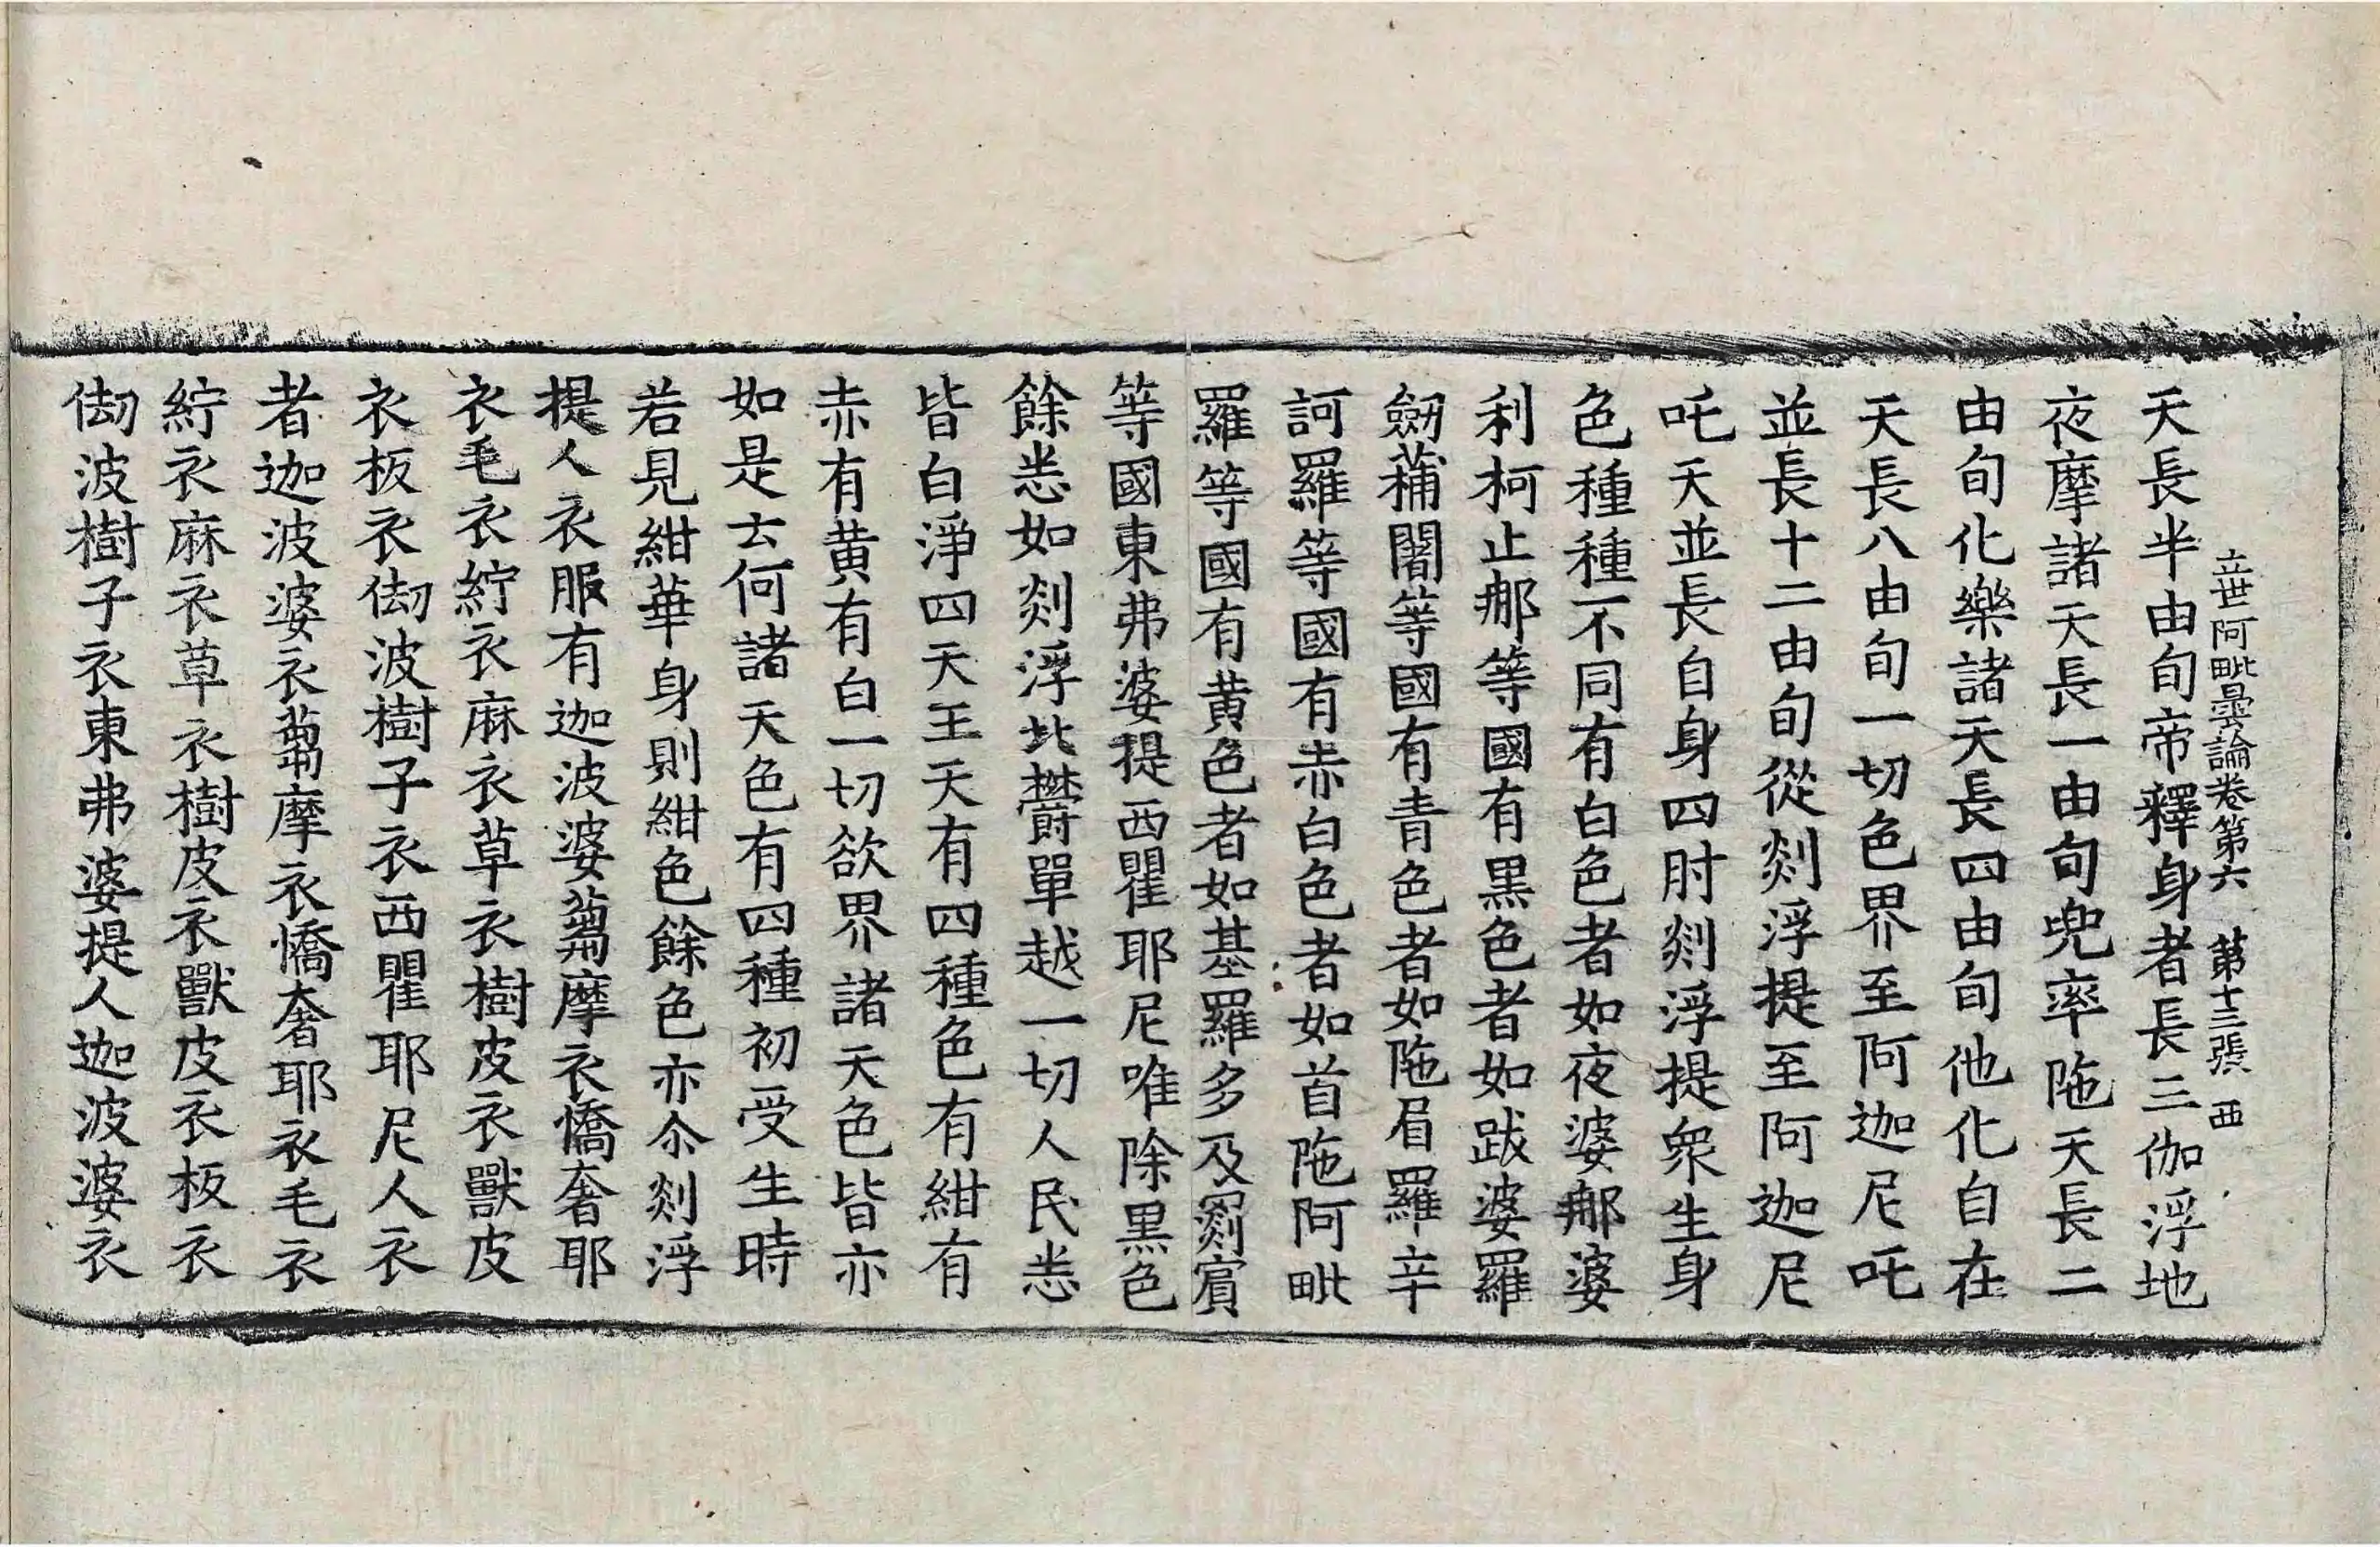 立世阿毗曇論卷第六 第十三張 西
天長半由旬帝釋身者長三伽浮地
夜摩諸天長一由旬兜率陁天長二
由旬化樂諸天長四由旬他化自在
天長八由旬一切色界至阿迦尼吒
並長十二由旬從剡浮提至阿迦尼
吒天並長自身四肘剡浮提衆生身
色種種不同有白色者如夜婆郍婆
利柯止郍等國有黑色者如跋婆羅
劔蒱闍等國有青色者如陁眉羅辛
訶羅等國有赤白色者如首陁阿毗
羅等國有黄色者如基羅多及罽賓
等國東弗婆提西瞿耶尼唯除黑色
餘悉如剡浮北欝單越一切人民悉
皆白淨四天王天有四種色有紺有
赤有黄有白一切欲界諸天色皆亦
如是云何諸天色有四種初受生時
若見紺華身則紺色餘色亦尒剡浮
提人衣服有迦波婆蒭摩衣憍奢耶
衣毛衣紵衣麻衣草衣樹皮衣獸皮
衣板衣㓤波樹子衣西瞿耶尼人衣
者迦波婆衣蒭摩衣憍奢耶衣毛衣
紵衣麻衣草衣樹皮衣獸皮衣板衣
㓤波樹子衣東弗婆提人迦波婆衣